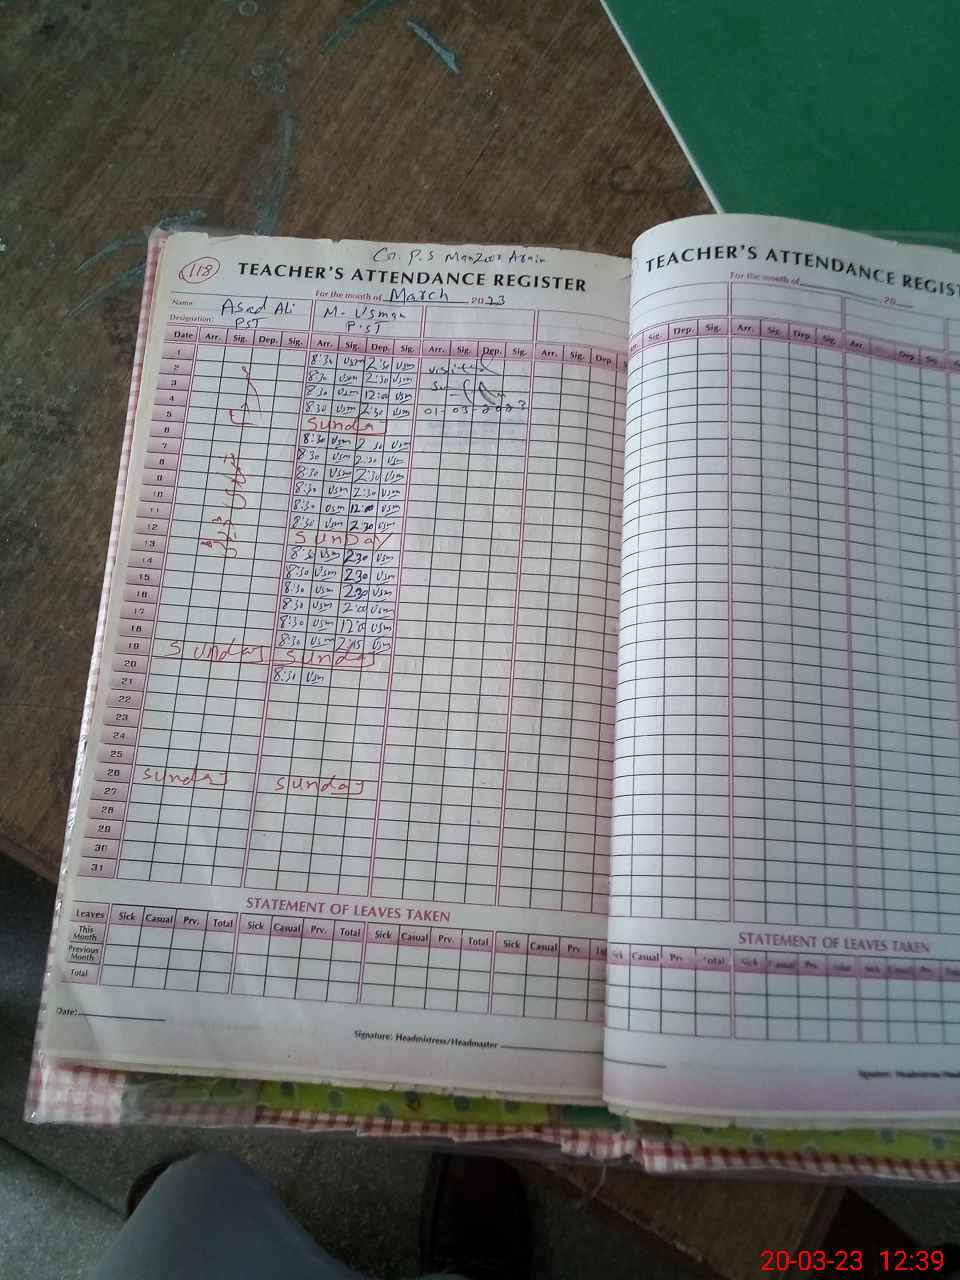 118
G. P. S Manzoor Arain
TEACHER'S ATTENDANCE REGISTER
For the month of March 2023
Name: Asad Ali M. Usman
Designation: PST P.ST
Date Arr. Sig. Dep. Sig. Arr. Sig. Dep. Sig. Arr. Sig. Dep. Sig. Arr. Sig. Dep.
1 8:30 Usm 2:30 Usm
2 8:30 Usm 2:30 Usm
3 8:30 Usm 12:00 Usm
4 8:30 Usm 2:30 Usm 01-03-2023
5 Sunday
6 8:30 Usm 2:30 Usm
7 8:30 Usm 2:30 Usm
8 8:30 Usm 2:30 Usm
9 8:30 Usm 2:30 Usm
10 8:30 Usm 12:00 Usm
11 8:30 Usm 2:30 Usm
12 Sunday
13 8:30 Usm 2:30 Usm
14 8:30 Usm 2:30 Usm
15 8:30 Usm 2:30 Usm
16 8:30 Usm 2:00 Usm
17 8:30 Usm 12:00 Usm
18 8:30 Usm 2:15 Usm
19 Sunday Sunday
20 8:30 Usm
21
22
23
24
25
26 Sunday Sunday
27
28
29
30
31
STATEMENT OF LEAVES TAKEN
Leaves Sick Casual Prv. Total Sick Casual Prv. Total Sick Casual Prv. Total Sick Casual Prv.
This Month
Previous Month
Total
Date:
Signature: Headmistress/Headmaster
TEACHER'S ATTENDANCE REGIST
For the month of 20
Arr. Sig. Dep. Sig. Arr. Sig. Dep. Sig. Arr. Dep. Sig.
STATEMENT OF LEAVES TAKEN
Casual Prv. Total Sick Casual Prv. Total Sick Casual Prv.
20-03-23 12:39